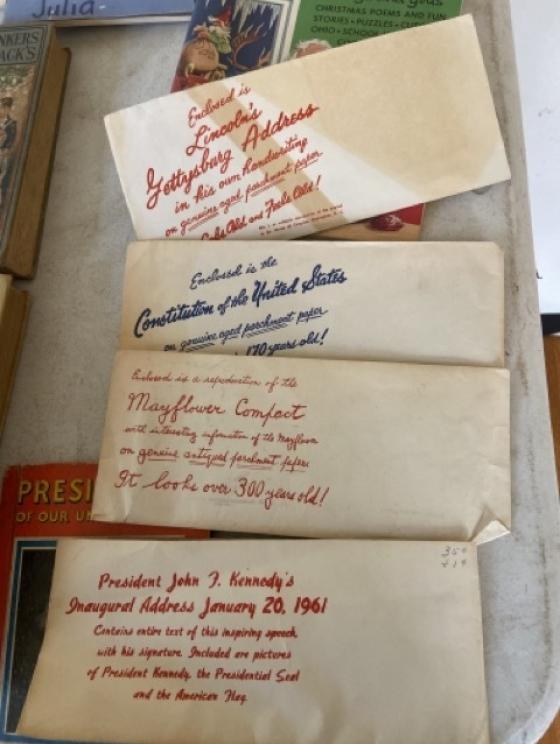 Julia
CHRISTMAS POEMS AND FUN
STORIES • PUZZLES •
OHIO • SCHOOL
Enclosed is
Lincoln's
Gettysburg Address
in his own handwriting
on genuine aged parchment paper
Looks Old and Feels Old!
Enclosed is the
Constitution of the United States
on genuine aged parchment paper
170 years old!
Enclosed is a reproduction of the
Mayflower Compact
with interesting information of the Mayflower
on genuine antiqued parchment paper
It looks over 300 years old!
PRESI
OF OUR UN
35¢
+ 1¢
President John F. Kennedy's
Inaugural Address January 20, 1961
Contains entire text of this inspiring speech,
with his signature. Included are pictures
of President Kennedy, the Presidential Seal
and the American Flag.